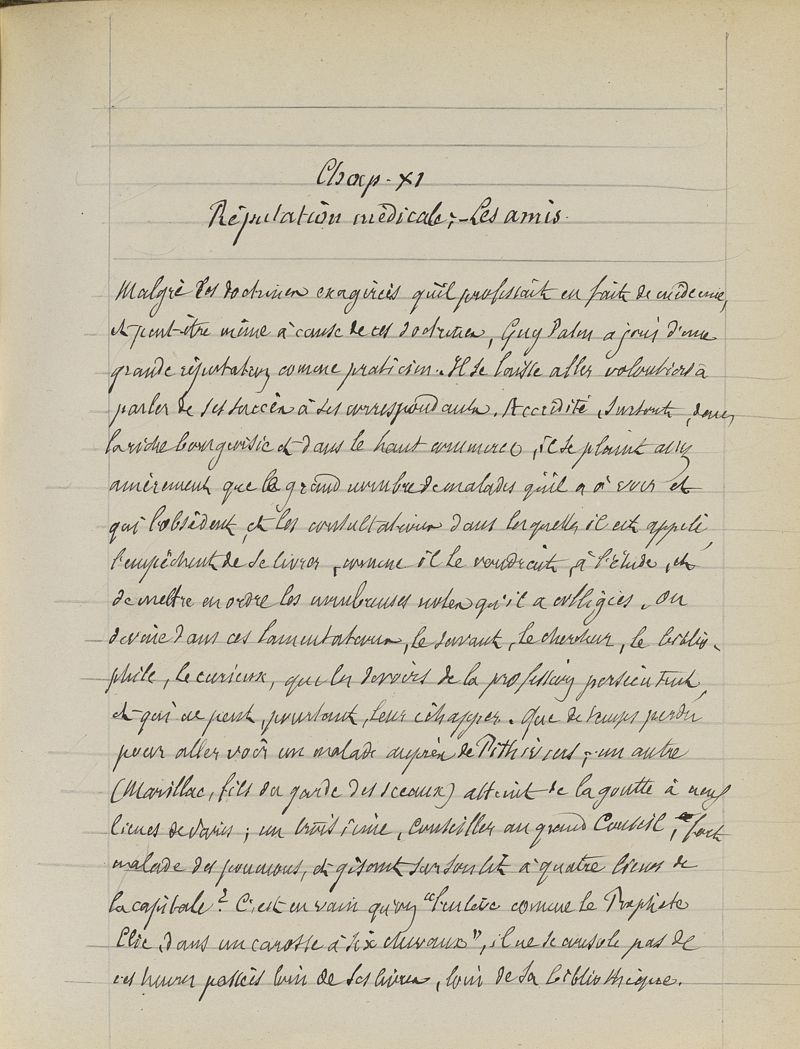 Chap. XI
Réputation médicale; - Les amis.
Malgré les doctrines exagérées qu'il professait en fait de médecine,
et peut-être même à cause de ces doctrines, Guy Patin a joui d'une
grande réputation comme praticien. Il se laisse aller volontiers à
parler de ses succès à ses correspondants. Accrédité, surtout, dans
la riche bourgeoisie et dans le haut commerce, il se plaint assez
amèrement que le grand nombre de malades qu'il a à voir et
qui l'obsèdent, et les consultations dans lesquelles il est appelé,
l'empêchent de se livrer, comme il le voudrait, à l'étude, et
de mettre en ordre les nombreuses notes qu'il a colligées. On
devine dans ces lamentations, le savant, le chercheur, le biblio-
phile, le curieux, que les devoirs de la profession persécutent,
et qui ne peut, pourtant, leur échapper. Que de temps perdu
pour aller voir un malade auprès de Pithiviers; un autre
(Marillac, fils du garde des sceaux) atteint de la goutte à neuf
lieues de Paris; un troisième, conseiller au grand Conseil, fort
malade des poumons, et gisant sur son lit à quatre lieues de
la capitale? C'est en vain qu'on "l'enlève comme le Prophète
Elie, dans un carosse à six chevaux", il ne se console pas de
ces heures passées loin de ses livres, loin de sa bibliothèque.